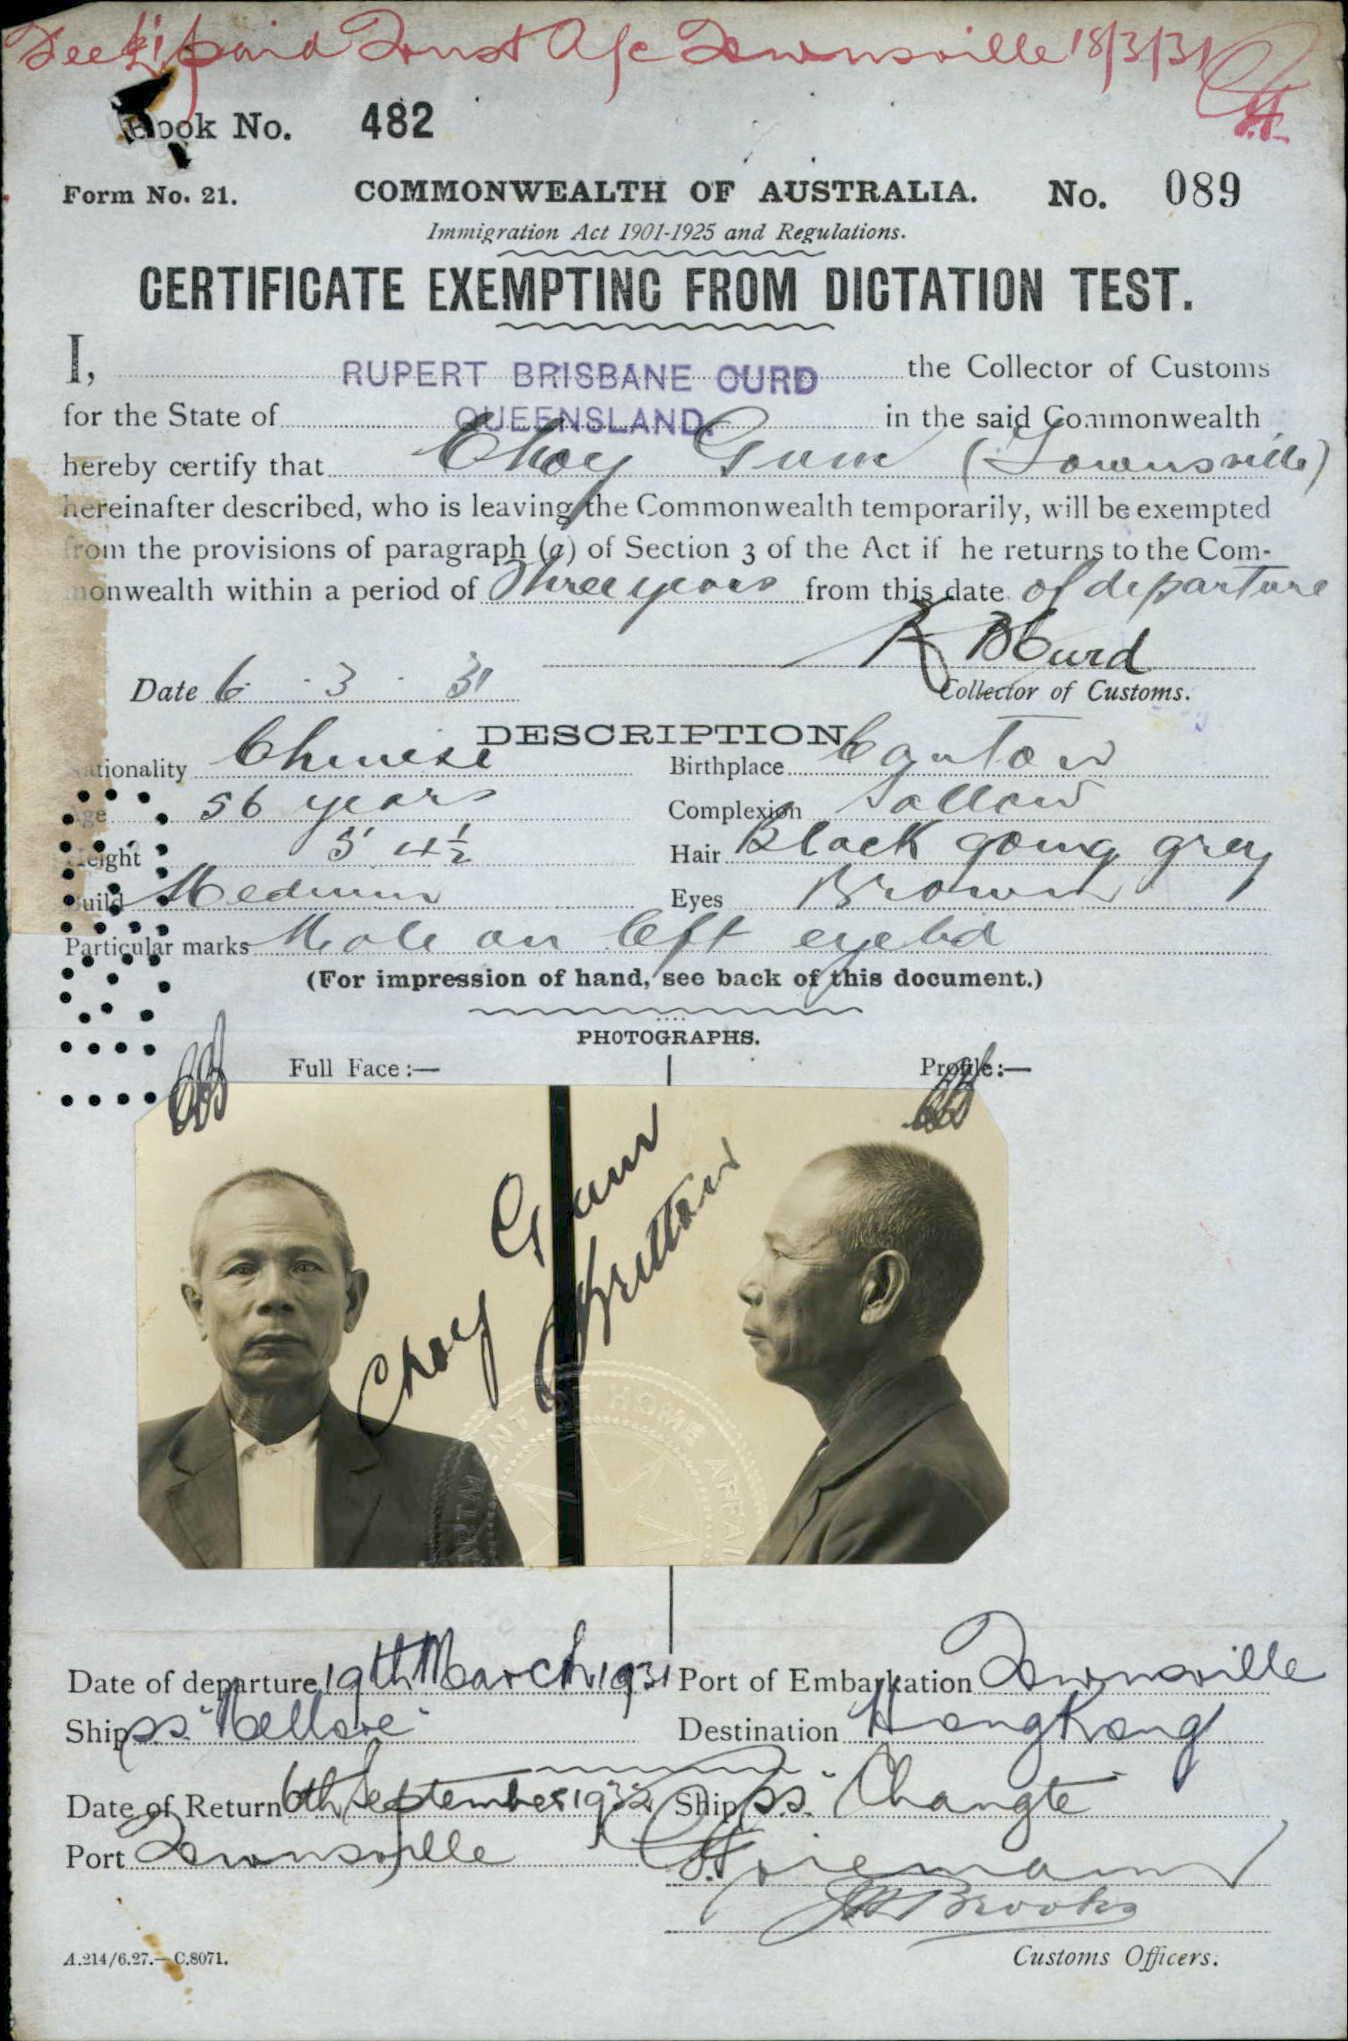 Fee £1 paid Trust A/c Townsville 18/3/31
Book No. 482
Form No. 21. COMMONWEALTH OF AUSTRALIA. No. 089
Immigration Act 1901-1925 and Regulations.
CERTIFICATE EXEMPTING FROM DICTATION TEST.
I, RUPERT BRISBANE CURD the Collector of Customs
for the State of QUEENSLAND. in the said Commonwealth
hereby certify that Choy Gum (Townsville)
hereinafter described, who is leaving the Commonwealth temporarily, will be exempted
from the provisions of paragraph (a) of Section 3 of the Act if he returns to the Com-
monwealth within a period of Three years from this date of departure
R B Curd
Date 6 . 3 . 31 Collector of Customs.
DESCRIPTION
Nationality Chinese Birthplace Canton
Age 56 years Complexion Sallow
Height 5' 4½ Hair Black going grey
Build Medium Eyes Brown
Particular marks Mole on left eyelid
(For impression of hand, see back of this document.)
PHOTOGRAPHS.
Full Face:— Profile:—
Choy Gum
HOME AFFAI
Date of departure 19th March 1931 Port of Embarkation Townsville
Ship s.s. "Nellore" Destination Hong Kong
Date of Return 6th September 1932 Ship s.s. "Changte"
Port Townsville
Brooks
Customs Officers.
A.214/6.27.—C.8071.